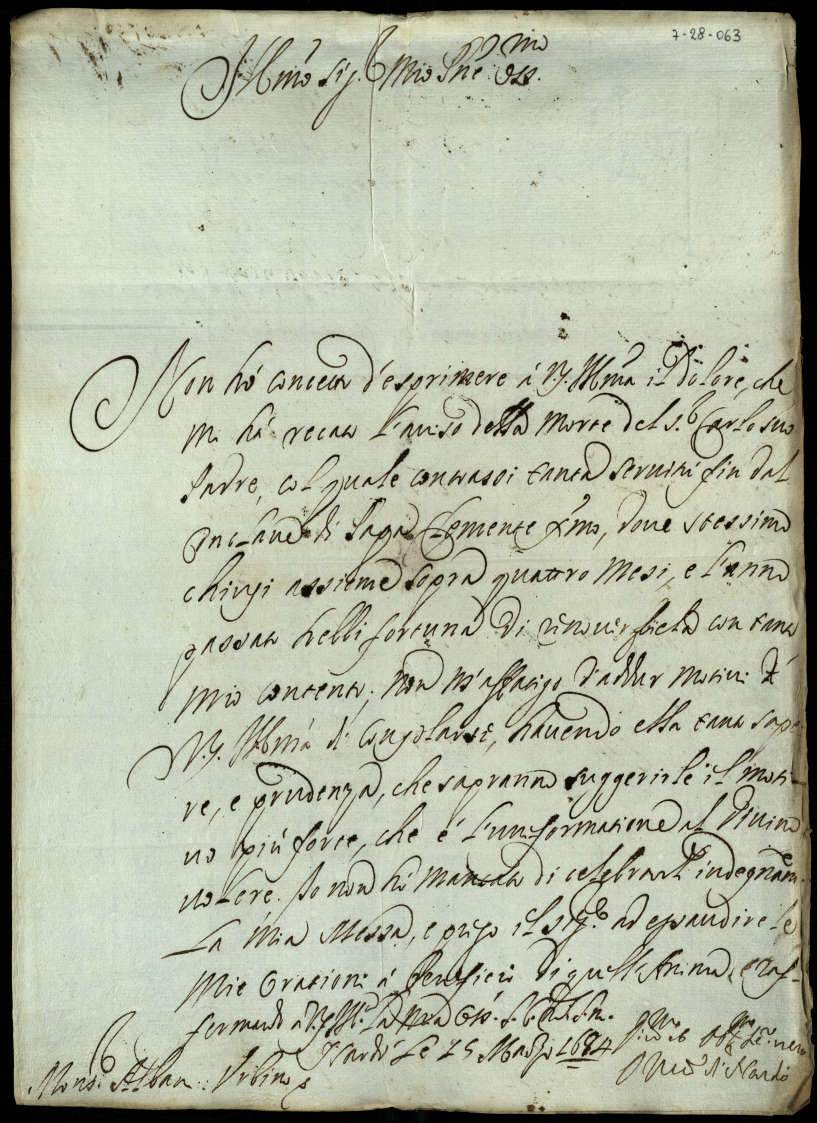 7-28-063
Illmo Sig.r Mio P.ne Oss.mo
Non hò concetto d'esprimere à V.S. Illma il dolore, che
mi hà recato l'auiso della morte del S.r Carlo suo
Padre, col quale contrassi tanta seruitù fin dal
Conclaue di Papa Clemente Xmo, doue stessimo
chiusi assieme sopra quattro mesi, e l'anno
passato hebbi fortuna di con tanto
mio contento; non m'affatigo d'addur motiui à
V.S. Illma di consolarsi, hauendo ella tanto sape-
re, e prudenza, che sapranno suggerirle il moti-
uo più forte, che è l'uniformatione al Diuino
uolere. Io non hò mancato di celebrarli indegnam.te
la mia Messa, e prego il Sig.re ad esaudire le
mie Orationi à beneficio di quell'Anima, e raf-
fermando à V.S. Illma la mia
Nardò le 15 Marzo 1684
Mons. Alban: Urbino
di Nardò